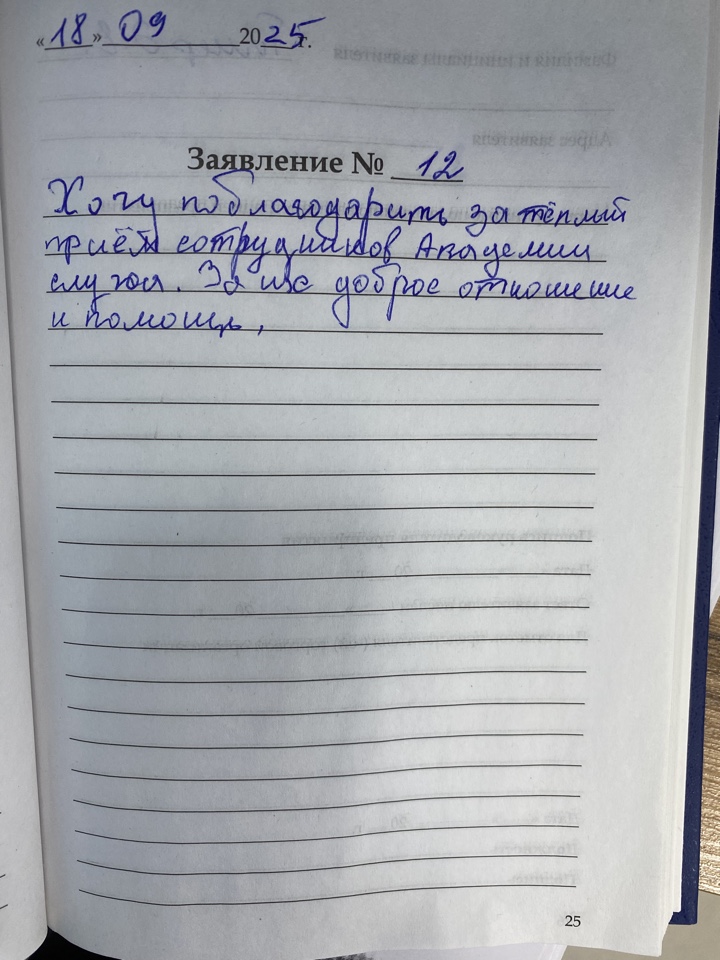 «18» 09 2025г.
Заявление № 12
Хочу поблагодарить за тёплый
приём сотрудников Академии
слуха. За их доброе отношение
и помощь.
25